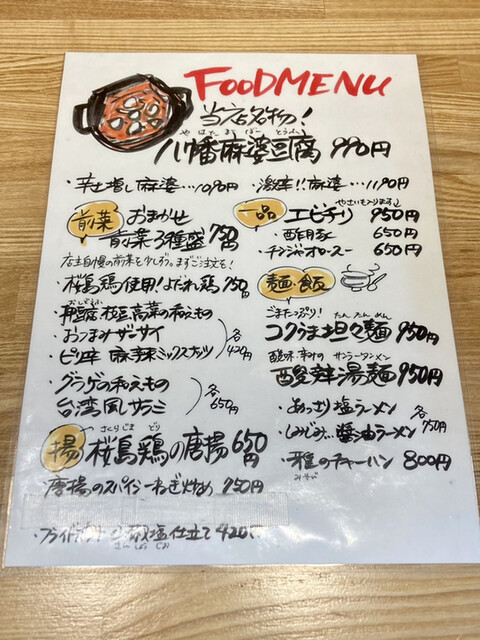 FOODMENU
当店名物!
やはたまーぼーとうふ
八幡麻婆豆腐 990円
・辛土増し麻婆…1090円
・激辛!!麻婆…1190円
前菜 おまかせ
前菜3種盛 750円
店主自慢の前菜を少しずつ。まずご注文を!
・桜島鶏使用!よだれ鶏 750円
枝豆高菜の和えもの
・おつまみザーサイ
・ピリ辛 麻辣ミックスナッツ
各420円
・クラゲの和えもの
台湾風サラミ
各650円
揚 さくらじまどり
桜島鶏の唐揚 650円
・唐揚のスパイシーねぎ炒め 750円
・フライドポテト 山椒塩仕立て 420円
さんしょうじお
一品 やさい入ります
エビチリ 950円
・酢豚 650円
・チンジャオロース― 650円
麺・飯
ごまたっぷり! たんたんめん
コクうま坦々麺 950円
酸味・辛味の サンラータンメン
酸辣湯麺 950円
・あっさり塩ラーメン
・しみじみ…醤油ラーメン
各750円
・雅のチャーハン 800円
みやび